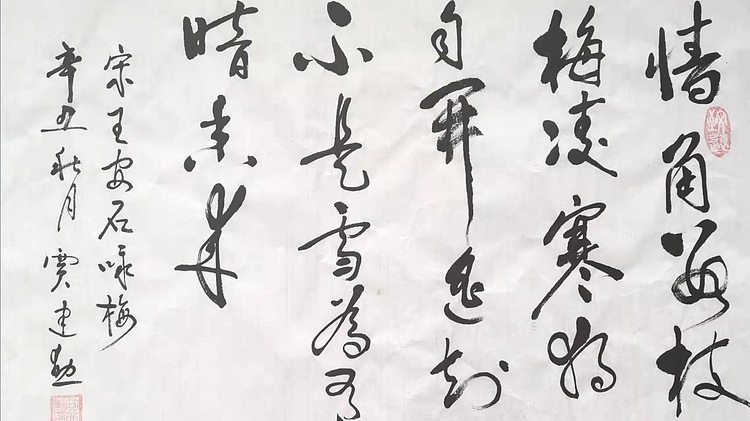 墙角数枝
梅凌寒独
自開遥知
不是雪為有
暗香来
宋王安石咏梅
辛丑秋月賈建